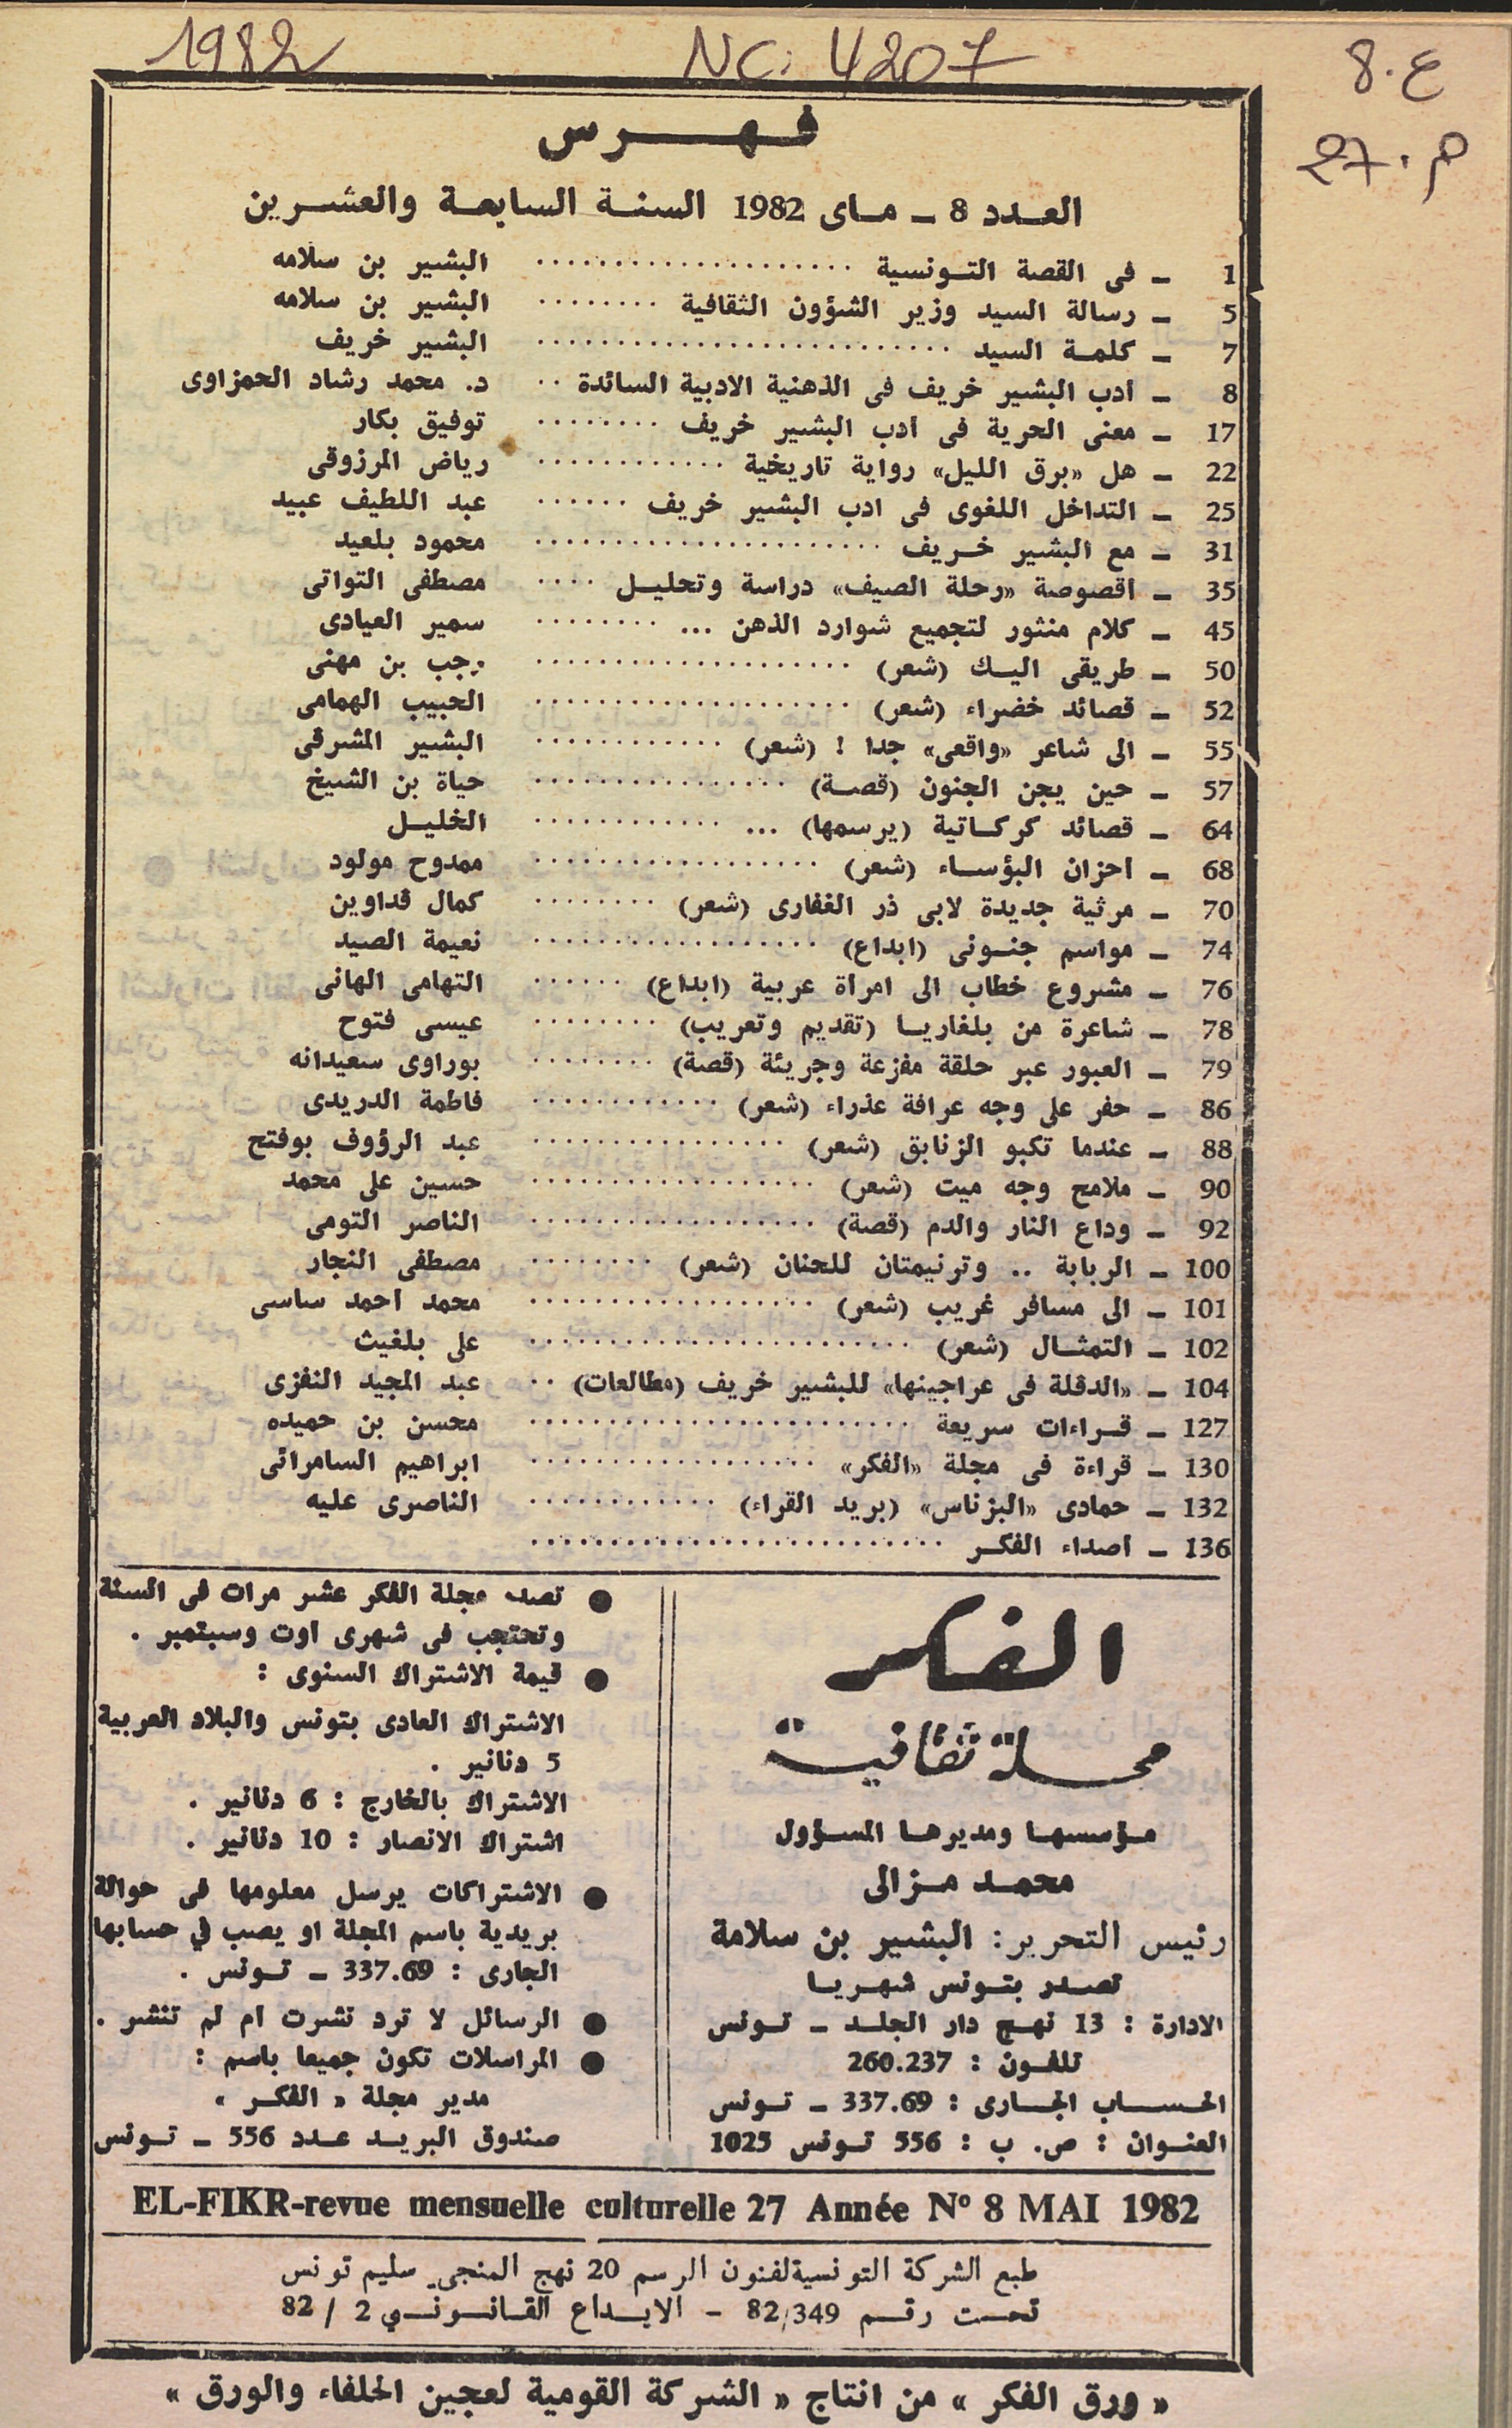 1982 NC: 4207 ع.8
م.27
فهرس
العدد 8 ــ ماى 1982 السنة السابعة والعشرين
1 ــ فى القصة التونسية .................... البشير بن سلامه
5 ــ رسالة السيد وزير الشؤون الثقافية ........ البشير بن سلامه
7 ــ كلمة السيد .......................... البشير خريف
8 ــ أدب البشير خريف فى الذهنية الادبية السائدة .. د. محمد رشاد الحمزاوى
17 ــ معنى الحرية فى أدب البشير خريف ........ توفيق بكار
22 ــ هل «برق الليل» رواية تاريخية ............ رياض المرزوقى
25 ــ التداخل اللغوى فى ادب البشير خريف ...... عبد اللطيف عبيد
31 ــ مع البشير خريف ...................... محمود بلعيد
35 ــ اقصوصة «رحلة الصيف» دراسة وتحليل .... مصطفى التواتى
45 ــ كلام منثور لتجميع شوارد الذهن ... ........ سمير العيادى
50 ــ طريقى اليك (شعر) .................... رجب بن مهنى
52 ــ قصائد خضراء (شعر) .................... الحبيب الهمامى
55 ــ الى شاعر «واقعى» جدا ! (شعر) ............ البشير المشرقى
57 ــ حين يجن الجنون (قصة) ................ حياة بن الشيخ
64 ــ قصائد كركاتية (يرسمها) ... ............ الخليل
68 ــ احزان البؤساء (شعر) .................. ممدوح مولود
70 ــ مرثية جديدة لابى ذر الغفارى (شعر) ........ كمال قداوين
74 ــ مواسم جنونى (ابداع) .................. نعيمة الصيد
76 ــ مشروع خطاب الى امرأة عربية (ابداع) ...... التهامى الهانى
78 ــ شاعرة من بلغاريا (تقديم وتعريب) ........ عيسى فتوح
79 ــ العبور عبر حلقة مفزعة وجريئة (قصة) ........ بوراوى سعيدانه
86 ــ حفر على وجه عرافة عذراء (شعر) ............ فاطمة الدريدى
88 ــ عندما تكبو الزنابق (شعر) ................ عبد الرؤوف بوفتح
90 ــ ملامح وجه ميت (شعر) .................. حسين على محمد
92 ــ وداع النار والدم (قصة) .................. الناصر التومى
100 ــ الربابة .. وترنيمتان للحنان (شعر) ........ مصطفى النجار
101 ــ الى مسافر غريب (شعر) .................. محمد احمد ساسى
102 ــ التمثال (شعر) ........................ على بلغيث
104 ــ «الدقلة فى عراجينها» للبشير خريف (مطالعات) .. عبد المجيد النفزى
127 ــ قراءات سريعة ........................ محسن بن حميده
130 ــ قراءة فى مجلة «الفكر» .................. ابراهيم السامرائى
132 ــ حمادى «البزناس» (بريد القراء) ............ الناصرى عليه
136 ــ أصداء الفكر ..........................
الفكر
مجلة ثقافية
مؤسسها ومديرها المسؤول
محمد مزالى
رئيس التحرير: البشير بن سلامة
تصدر بتونس شهريا
الادارة : 13 نهج دار الجلد ــ تونس
تلفون : 260.237
الحساب الجارى : 337.69 ــ تونس
العنوان : ص. ب : 556 تونس 1025
● تصدر مجلة الفكر عشر مرات فى السنة
وتحتجب فى شهرى أوت وسبتمبر .
● قيمة الاشتراك السنوى :
الاشتراك العادى بتونس والبلاد العربية
5 دنانير .
الاشتراك بالخارج : 6 دنانير .
اشتراك الانصار : 10 دنانير .
● الاشتراكات يرسل معلومها فى حوالة
بريدية باسم المجلة او يصب في حسابها
الجارى : 337.69 ــ تونس .
● الرسائل لا ترد نشرت ام لم تنشر .
● المراسلات تكون جميعا باسم :
مدير مجلة « الفكر »
صندوق البريد عدد 556 ــ تونس
EL-FIKR-revue mensuelle culturelle 27 Année N° 8 MAI 1982
طبع الشركة التونسية لفنون الرسم 20 نهج المنجى سليم تونس
تحت رقم 82/349 - الايداع القانوني 2 / 82
« ورق الفكر » من انتاج « الشركة القومية لعجين الحلفاء والورق »